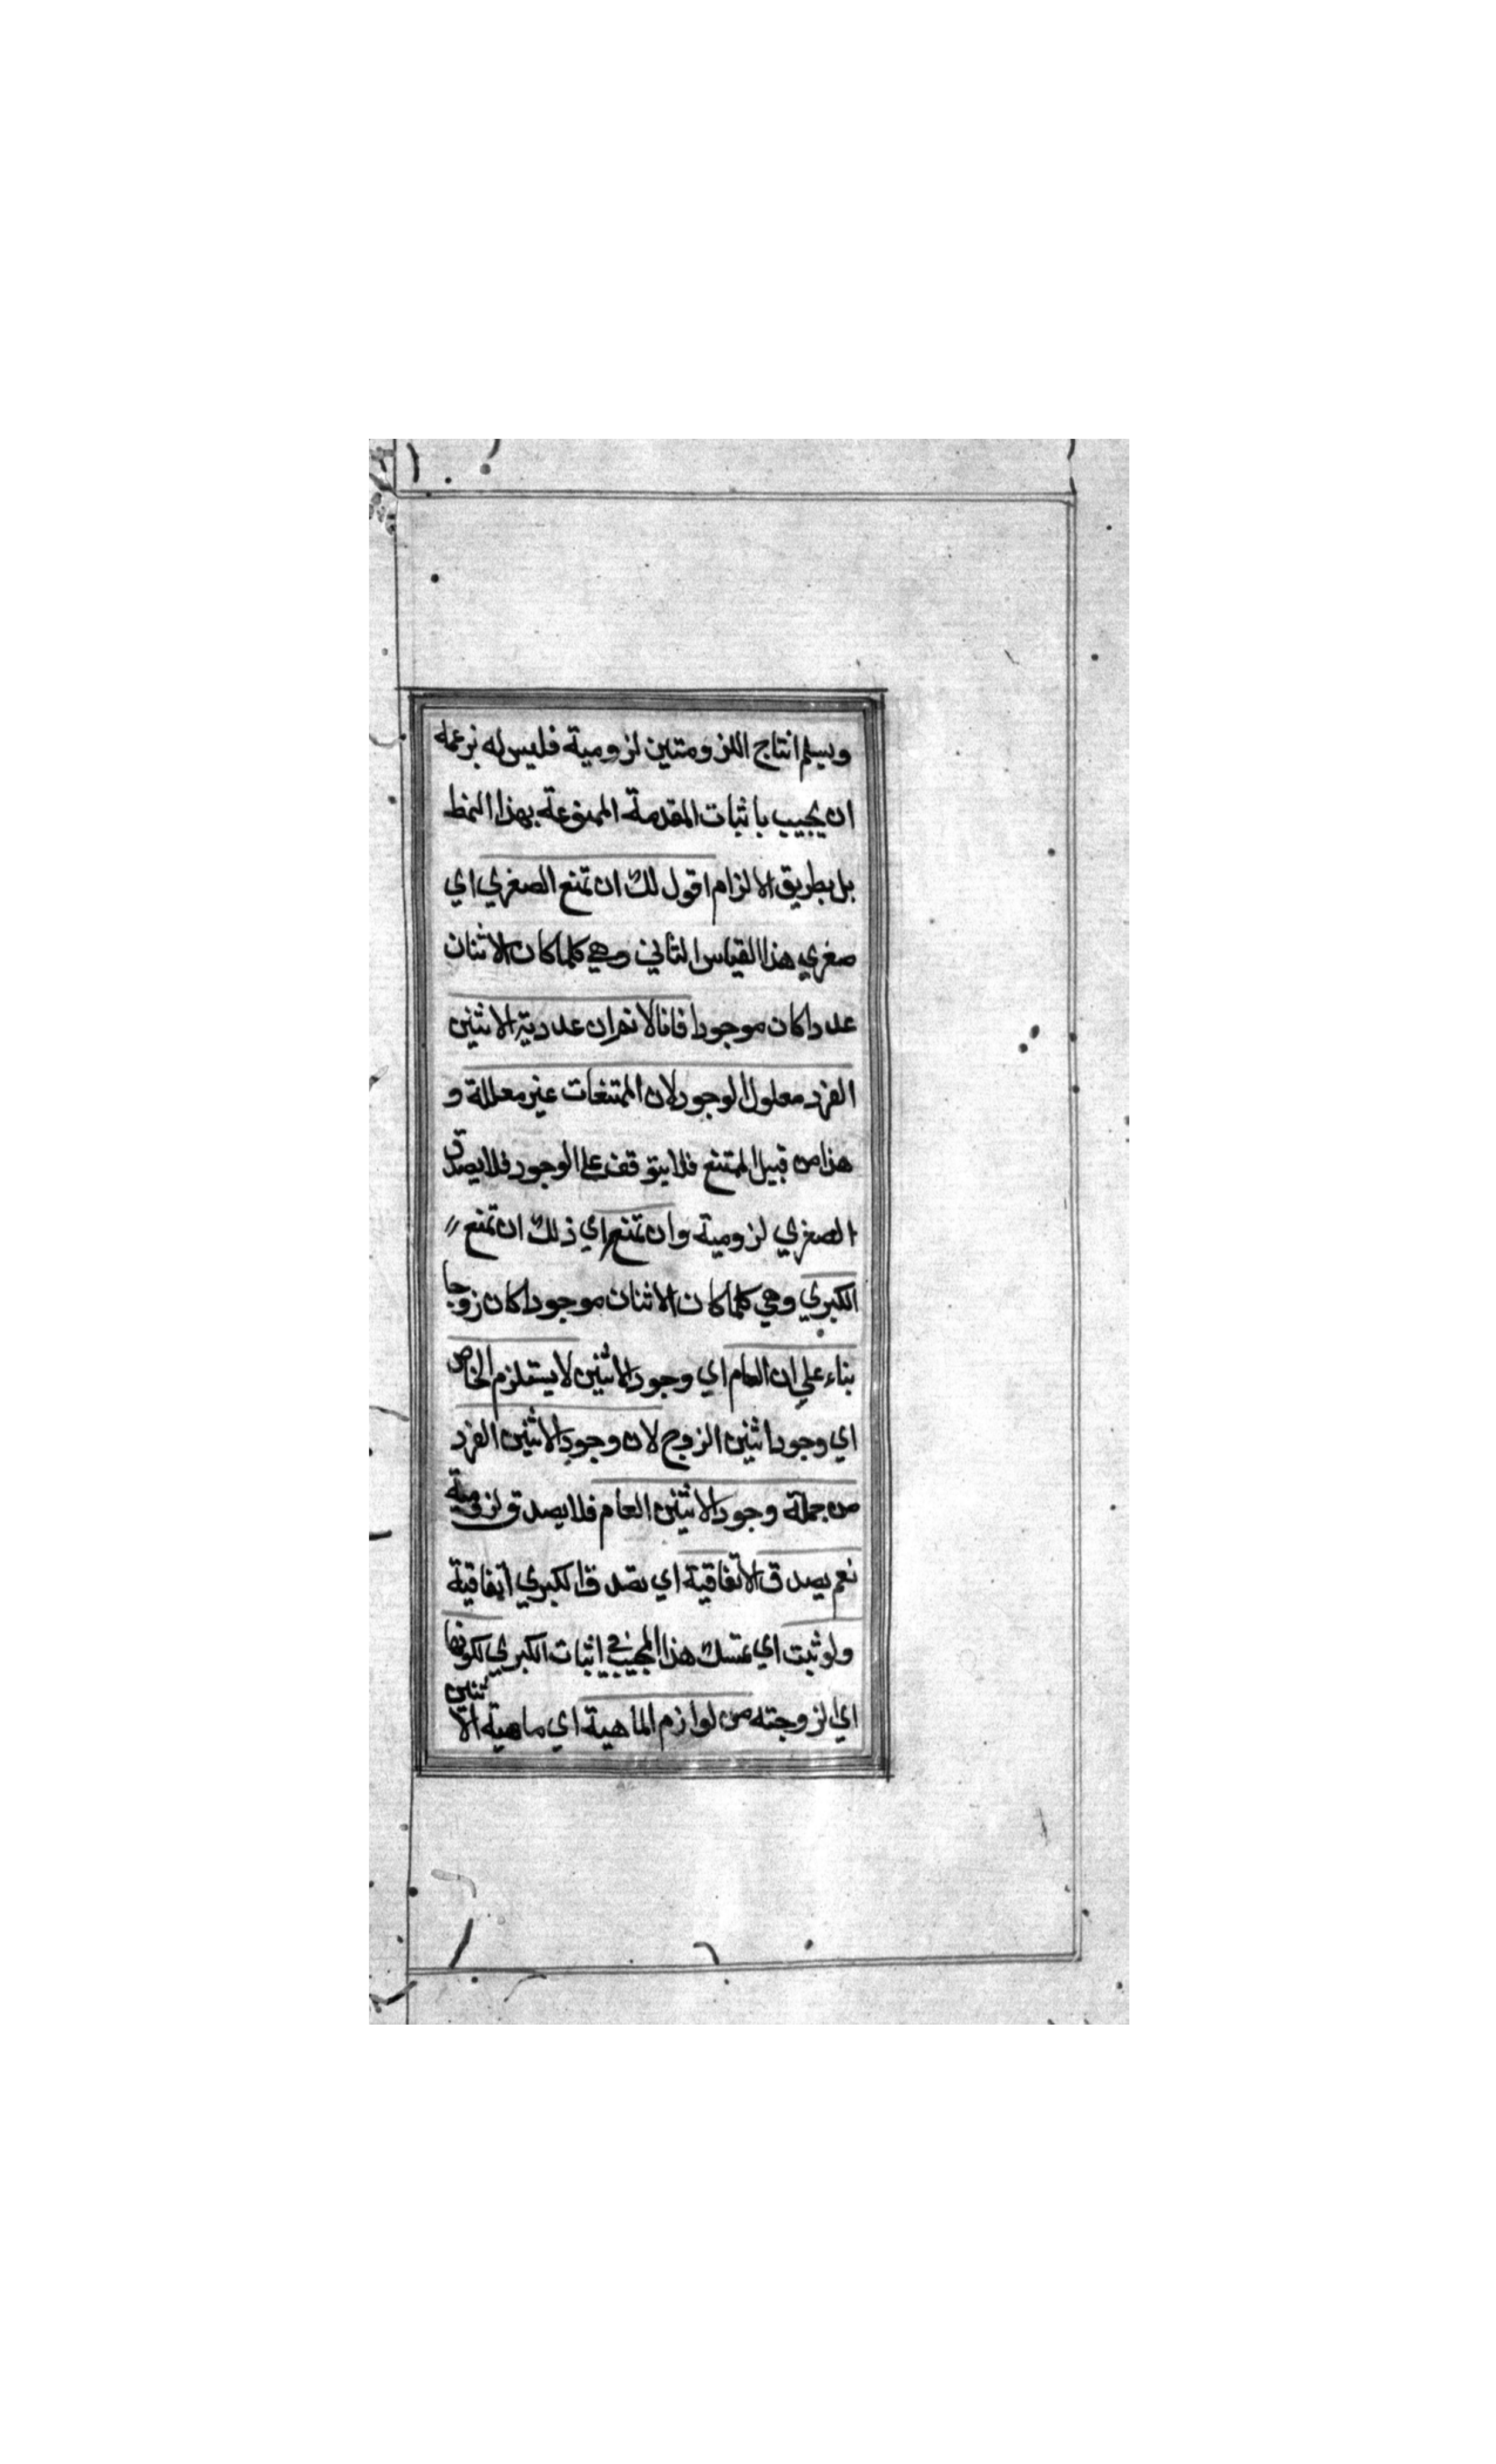 ويسلم انتاج اللزومتين لزومية فليس له بزعمه
ان يجيب باثبات المقدمة الممنوعة بهذا النمط
بل بطريق الالزام اقول لك ان تمنع الصغري اي
صغري هذا القياس الثاني وهي كلما كان الاثنان
عددا كان موجودا فانا لانم ان عددية الاثنين
الفرد معلول الوجود لان الممتنعات غير معللة و
هذا من قبيل الممتنع فلا يتوقف علي الوجود فلا يصدق
الصغري لزومية وان تمنع اي ذلك ان تمنع
الكبري وهي كلما كان الاثنان موجودا كان زوجا
بناء علي ان العام اي وجود الاثنين لا يستلزم الخاص
اي وجود اثنين الزوج لان وجود الاثنين الفرد
من جملة وجود الاثنين العام فلا يصدق لزومية
نعم يصدق الاتفاقية اي تصدق الكبري اتفاقية
ولو ثبت اي تمسك هذا المجيب في اثبات الكبري لكونها
اي الزوجته من لوازم الماهية اي ماهية الاثنين